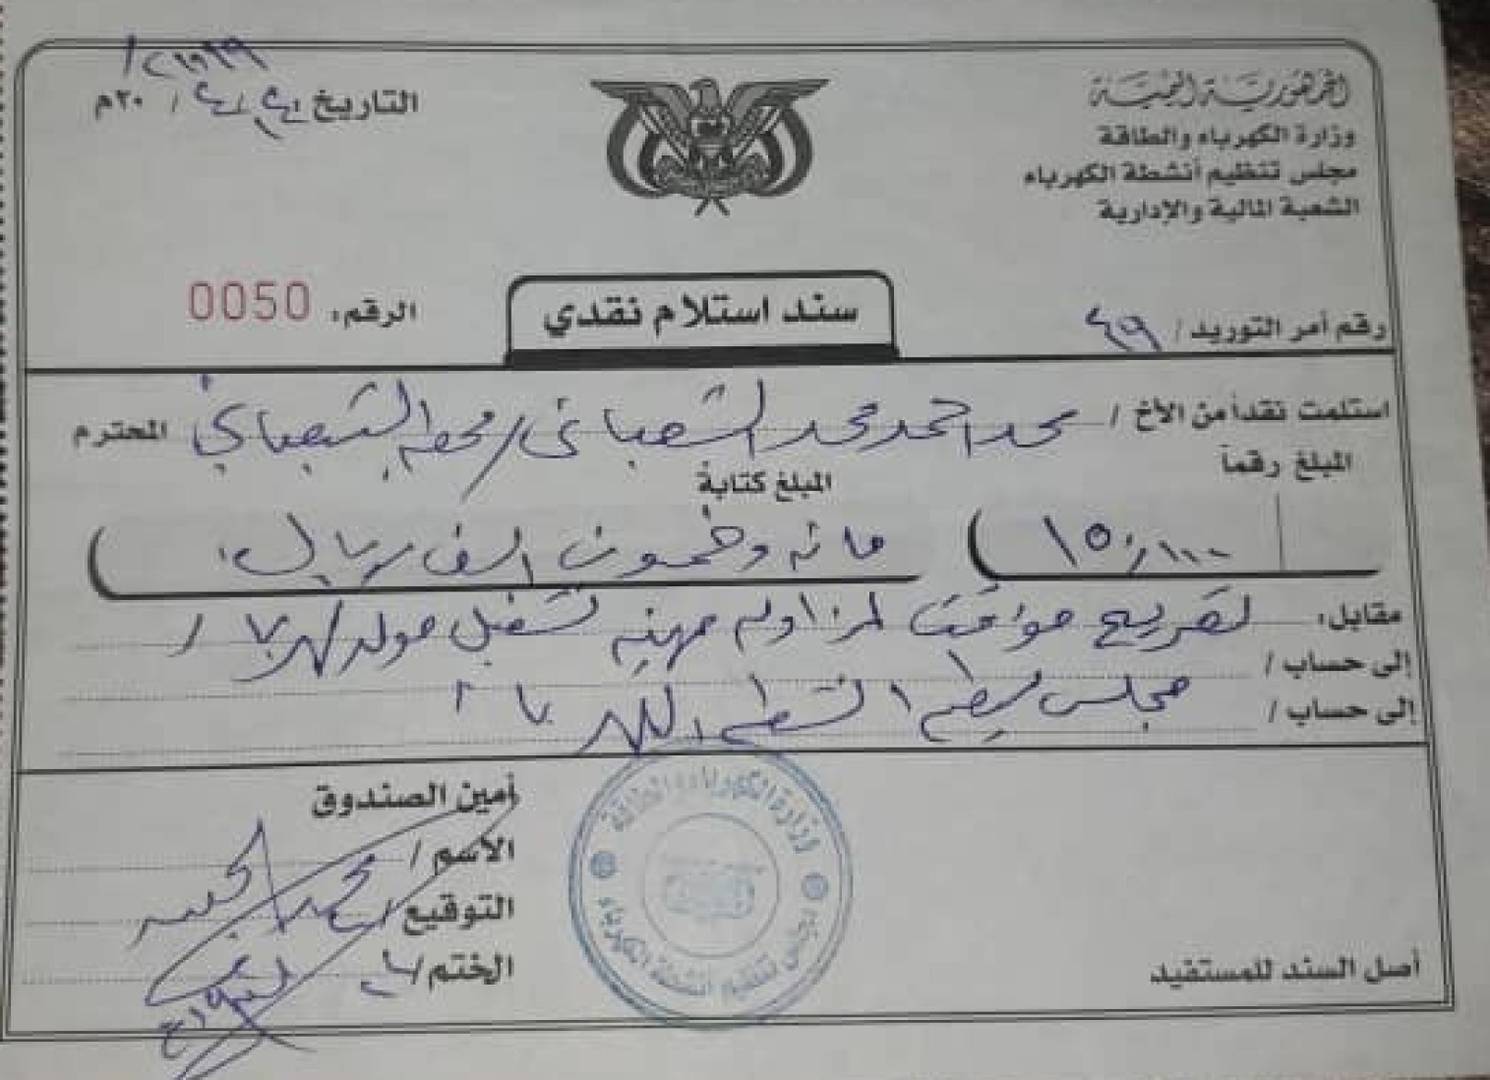 الجمهورية اليمنية
وزارة الكهرباء والطاقة
مجلس تنظيم أنشطة الكهرباء
الشعبة المالية والإدارية
التاريخ / / ٢٠م
رقم أمر التوريد / ٤٩
سند استلام نقدي
الرقم: 0050
استلمت نقداً من الأخ / محمد احمد محمد الشعباني / محطه الشعباني المحترم
المبلغ رقماً
المبلغ كتابة
١٥٠٬٠٠٠
مائه وخمسون الف ريال
مقابل: تصريح مؤقت لمزاوله مهنه تشغيل مولد كهرباء /
إلى حساب /
مجلس تنظيم انشطه الكهرباء
إلى حساب /
أمين الصندوق
الاسم / محمد
التوقيع /
الختم /
وزارة الكهرباء والطاقة
مجلس تنظيم أنشطة الكهرباء
أصل السند للمستفيد